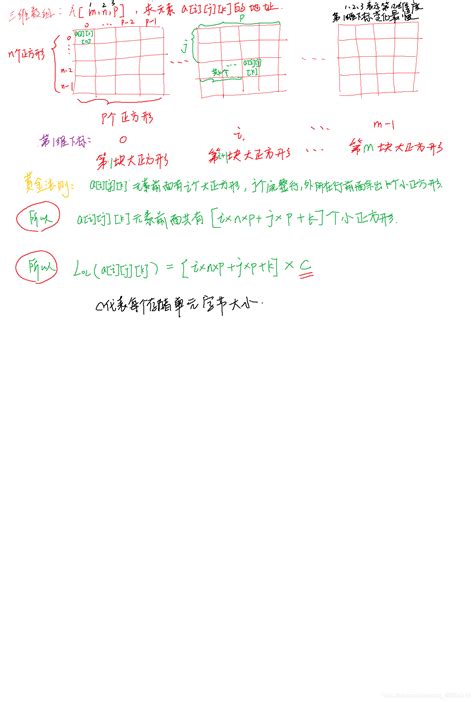 三维数组: A[m,n,p], 求元素 a[i][j][k]的地址.
1 2 3
1.2.3 表示第几维度
第1维下标变化最慢
0 ... p-2 p-1
p
0
1
n-2
n-1
n个正方形
a[0][0][0]
j
共k个
a[i][j][k]
p个正方形
第1维下标: 0 i ... m-1
第1块大正方形 第i+1块大正方形 ... 第m块大正方形
黄金法则: a[i][j][k] 元素前面有i个大正方形, j个完整行, 外所在行前面多出k个小正方形.
所以 a[i][j][k]元素前面共有 [i×n×p+j×p+k]个小正方形.
所以 Loc(a[i][j][k]) = [i×n×p+j×p+k]×C
C代表每个存储单元字节大小.